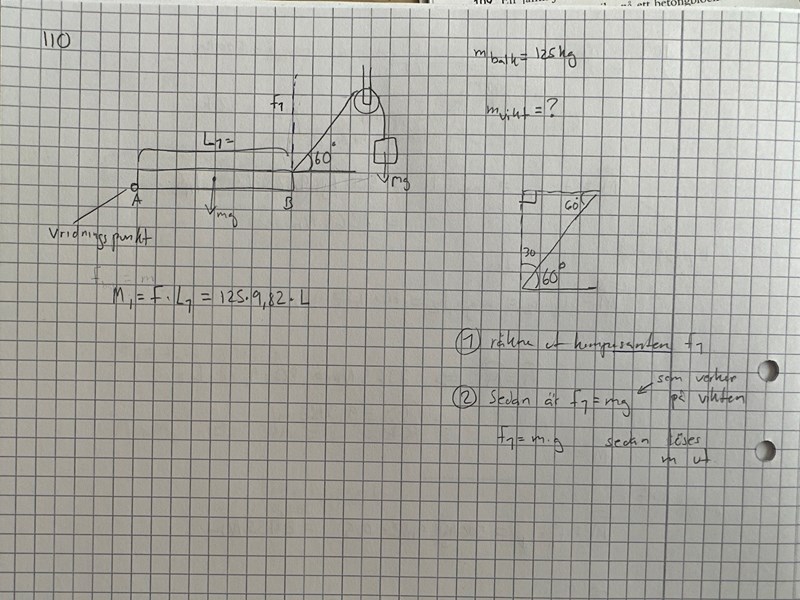 110
m balk = 125kg
f1
m vikt = ?
L1 =
60°
mg
A
B
mg
Vridningspunkt
60°
30
60°
M1 = F · L1 = 125 · 9,82 · L
① räkna ut komposanten f1
som verkar
② Sedan är f1 = mg på vikten
f1 = m · g sedan löses
m ut